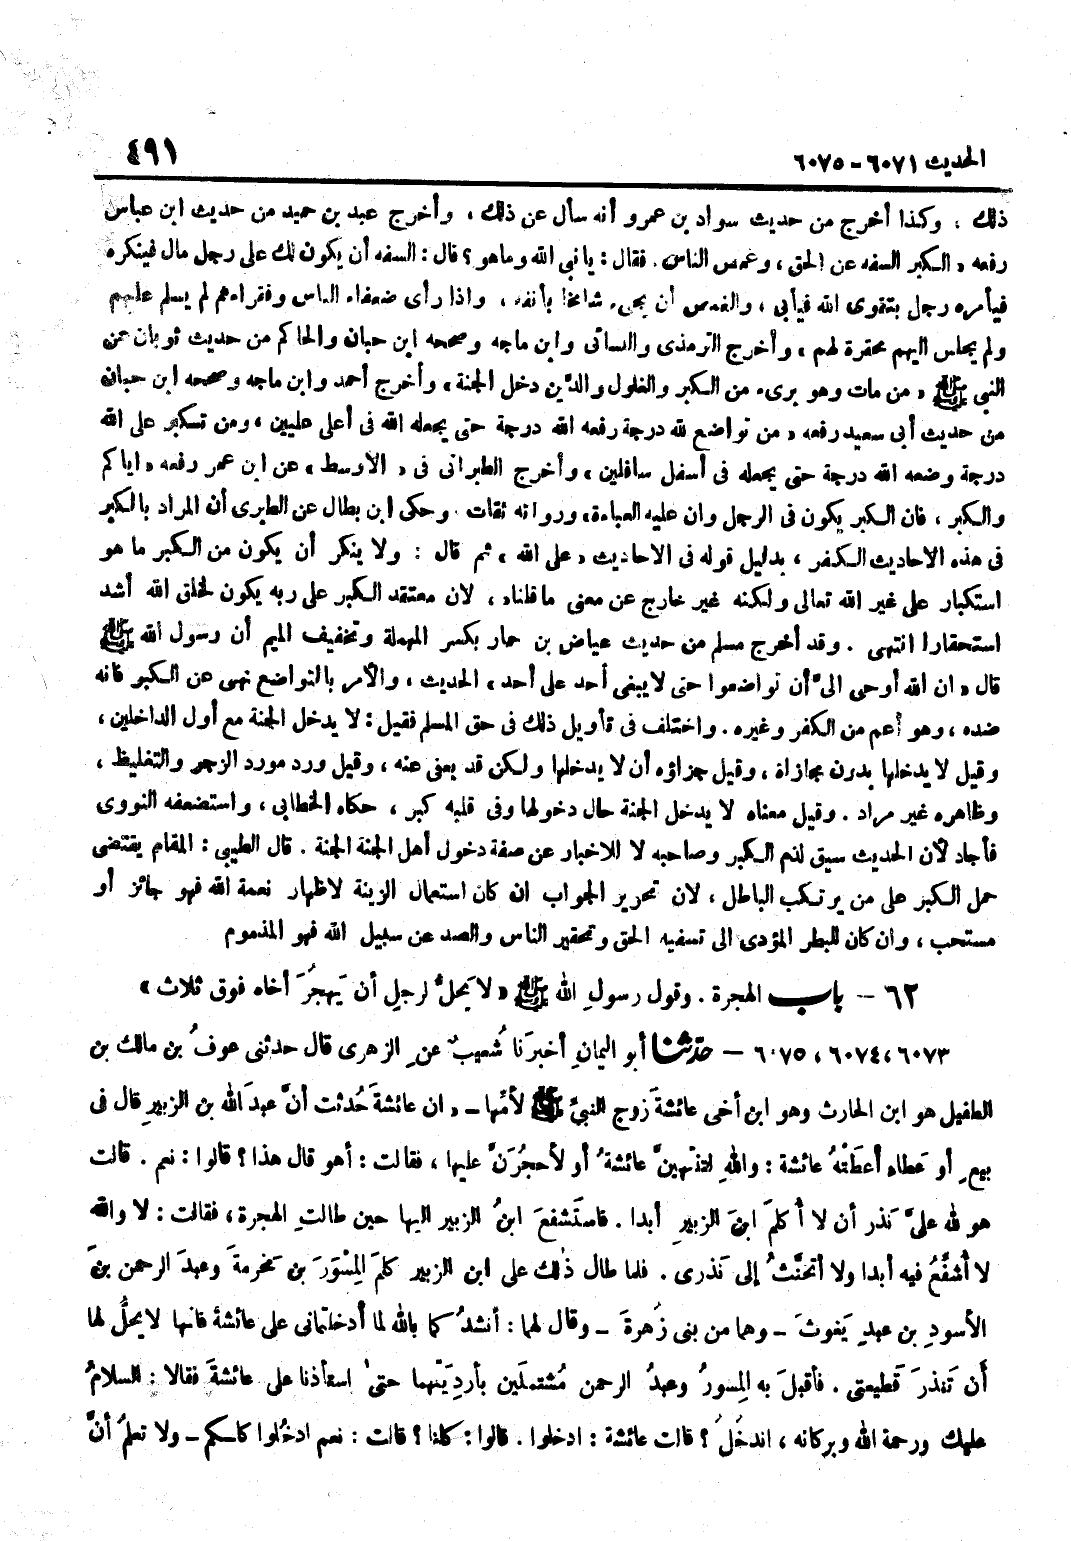 الحديث ٦٠٧١ - ٦٠٧٥
٤٩١
ذلك ، وكذا أخرج من حديث سواد بن عمرو أنه سأل عن ذلك ، وأخرج عبد بن حميد من حديث ابن عباس
رفعه « الكبر السفه عن الحق ، وغمص الناس . فقال : يا نبي الله وما هو ؟ قال : السفه أن يكون لك على رجل مال فينكره
فيأمره رجل بتقوى الله فيأبى ، والغمص أن يجيء شامخا بأنفه ، واذا رأى ضعفاء الناس وفقراءهم لم يسلم عليهم
ولم يجلس اليهم محقرة لهم ، وأخرج الترمذى والنسائى وابن ماجه وصححه ابن حبان والحاكم من حديث ثوبان عن
النبي ﷺ « من مات وهو برىء من الكبر والغلول والدَّين دخل الجنة » وأخرج أحمد وابن ماجه وصححه ابن حبان
من حديث أبى سعيد رفعه « من تواضع لله درجة رفعه الله درجة حتى يجعله الله فى أعلى عليين ، ومن تكبر على الله
درجة وضعه الله درجة حتى يجعله فى أسفل سافلين ، وأخرج الطبرانى فى « الأوسط » عن ابن عمر رفعه « اياكم
والكبر ، فان الكبر يكون فى الرجل وان عليه العباءة، ورواته ثقات . وحكى ابن بطال عن الطبرى أن المراد بالكبر
فى هذه الاحاديث الكفر ، بدليل قوله فى الاحاديث « على الله » ثم قال : ولا ينكر أن يكون من الكبر ما هو
استكبار على غير الله تعالى ولكنه غير خارج عن معنى ما قلناه ، لان معتقد الكبر على ربه يكون لخلق الله أشد
استحقارا انتهى . وقد أخرج مسلم من حديث عياض بن حمار بكسر المهملة وتخفيف الميم أن رسول الله ﷺ
قال « ان الله أوحى الىَّ أن تواضعوا حتى لا يبغى أحد على أحد » الحديث ، والأمر بالتواضع نهى عن الكبر فانه
ضده ، وهو أعم من الكفر وغيره . واختلف فى تأويل ذلك فى حق المسلم فقيل : لا يدخل الجنة مع أول الداخلين ،
وقيل لا يدخلها بدون مجازاة ، وقيل جزاؤه أن لا يدخلها ولكن قد يعفى عنه ، وقيل ورد مورد الزجر والتغليظ ،
وظاهره غير مراد . وقيل معناه لا يدخل الجنة حال دخولها وفى قلبه كبر ، حكاه الخطابى ، واستضعفه النووى
فأجاد لأن الحديث سيق لذم الكبر وصاحبه لا للاخبار عن صفة دخول أهل الجنة الجنة . قال الطيبى : المقام يقتضى
حمل الكبر على من يرتكب الباطل ، لان تحرير الجواب ان كان استعمال الزينة لاظهار نعمة الله فهو جائز أو
مستحب ، وان كان للبطر المؤدى الى تسفيه الحق وتحقير الناس والصد عن سبيل الله فهو المذموم
٦٢ - باب الهجرة . وقول رسولِ الله ﷺ « لا يَحلُّ لرجلٍ أن يَهجُرَ أخاه فوق ثلاث »
٦٠٧٣ ، ٦٠٧٤ ، ٦٠٧٥ - حدثنا أبو اليمانِ أخبرَنا شُعيبٌ عنِ الزهرى قال حدثنى عوفُ بن مالك بن
الطفيل هو ابن الحارث وهو ابن أخى عائشةَ زوج النبىِّ ﷺ لأمِّها - « ان عائشةَ حُدثت أنَّ عبدَ الله بن الزبيرِ قال فى
بيعٍ أو عَطاء أعطَتْهُ عائشة : واللهِ لتنتهينَّ عائشةُ أو لأحجُرَنَّ عليها ، فقالت : أهو قال هذا ؟ قالوا : نعم . قالت
هو لله علىَّ نَذر أن لا أكلمَ ابنَ الزبيرِ أبدا . فاستَشفعَ ابنُ الزبير اليها حين طالتِ الهجرة ، فقالت : لا والله
لا أشفِّعُ فيه أبدا ولا أتحنَّثُ إلى نَذرى . فلما طال ذٰلك على ابن الزبير كلمَ المِسْوَرَ بن مَخرمةَ وعبدَ الرحمن بنَ
الأسودِ بن عبدِ يَغوثَ - وهما من بنى زُهرةَ - وقال لهما : أنشدُ كما بالله لما أدخلتمانى على عائشة فانها لا يحلُّ لها
أن تَنذرَ قَطيعتى . فأقبلَ به المِسورُ وعبدُ الرحمن مُشتملَين بأردِيَتهما حتىٰ استأذنا على عائشةَ فقالا : السلامُ
عليك ورحمة الله وبركاته ، اندخُلُ ؟ قالت عائشة : ادخلوا . قالوا : كلنا ؟ قالت : نعم ادخُلوا كلكم - ولا تعلمُ أنَّ